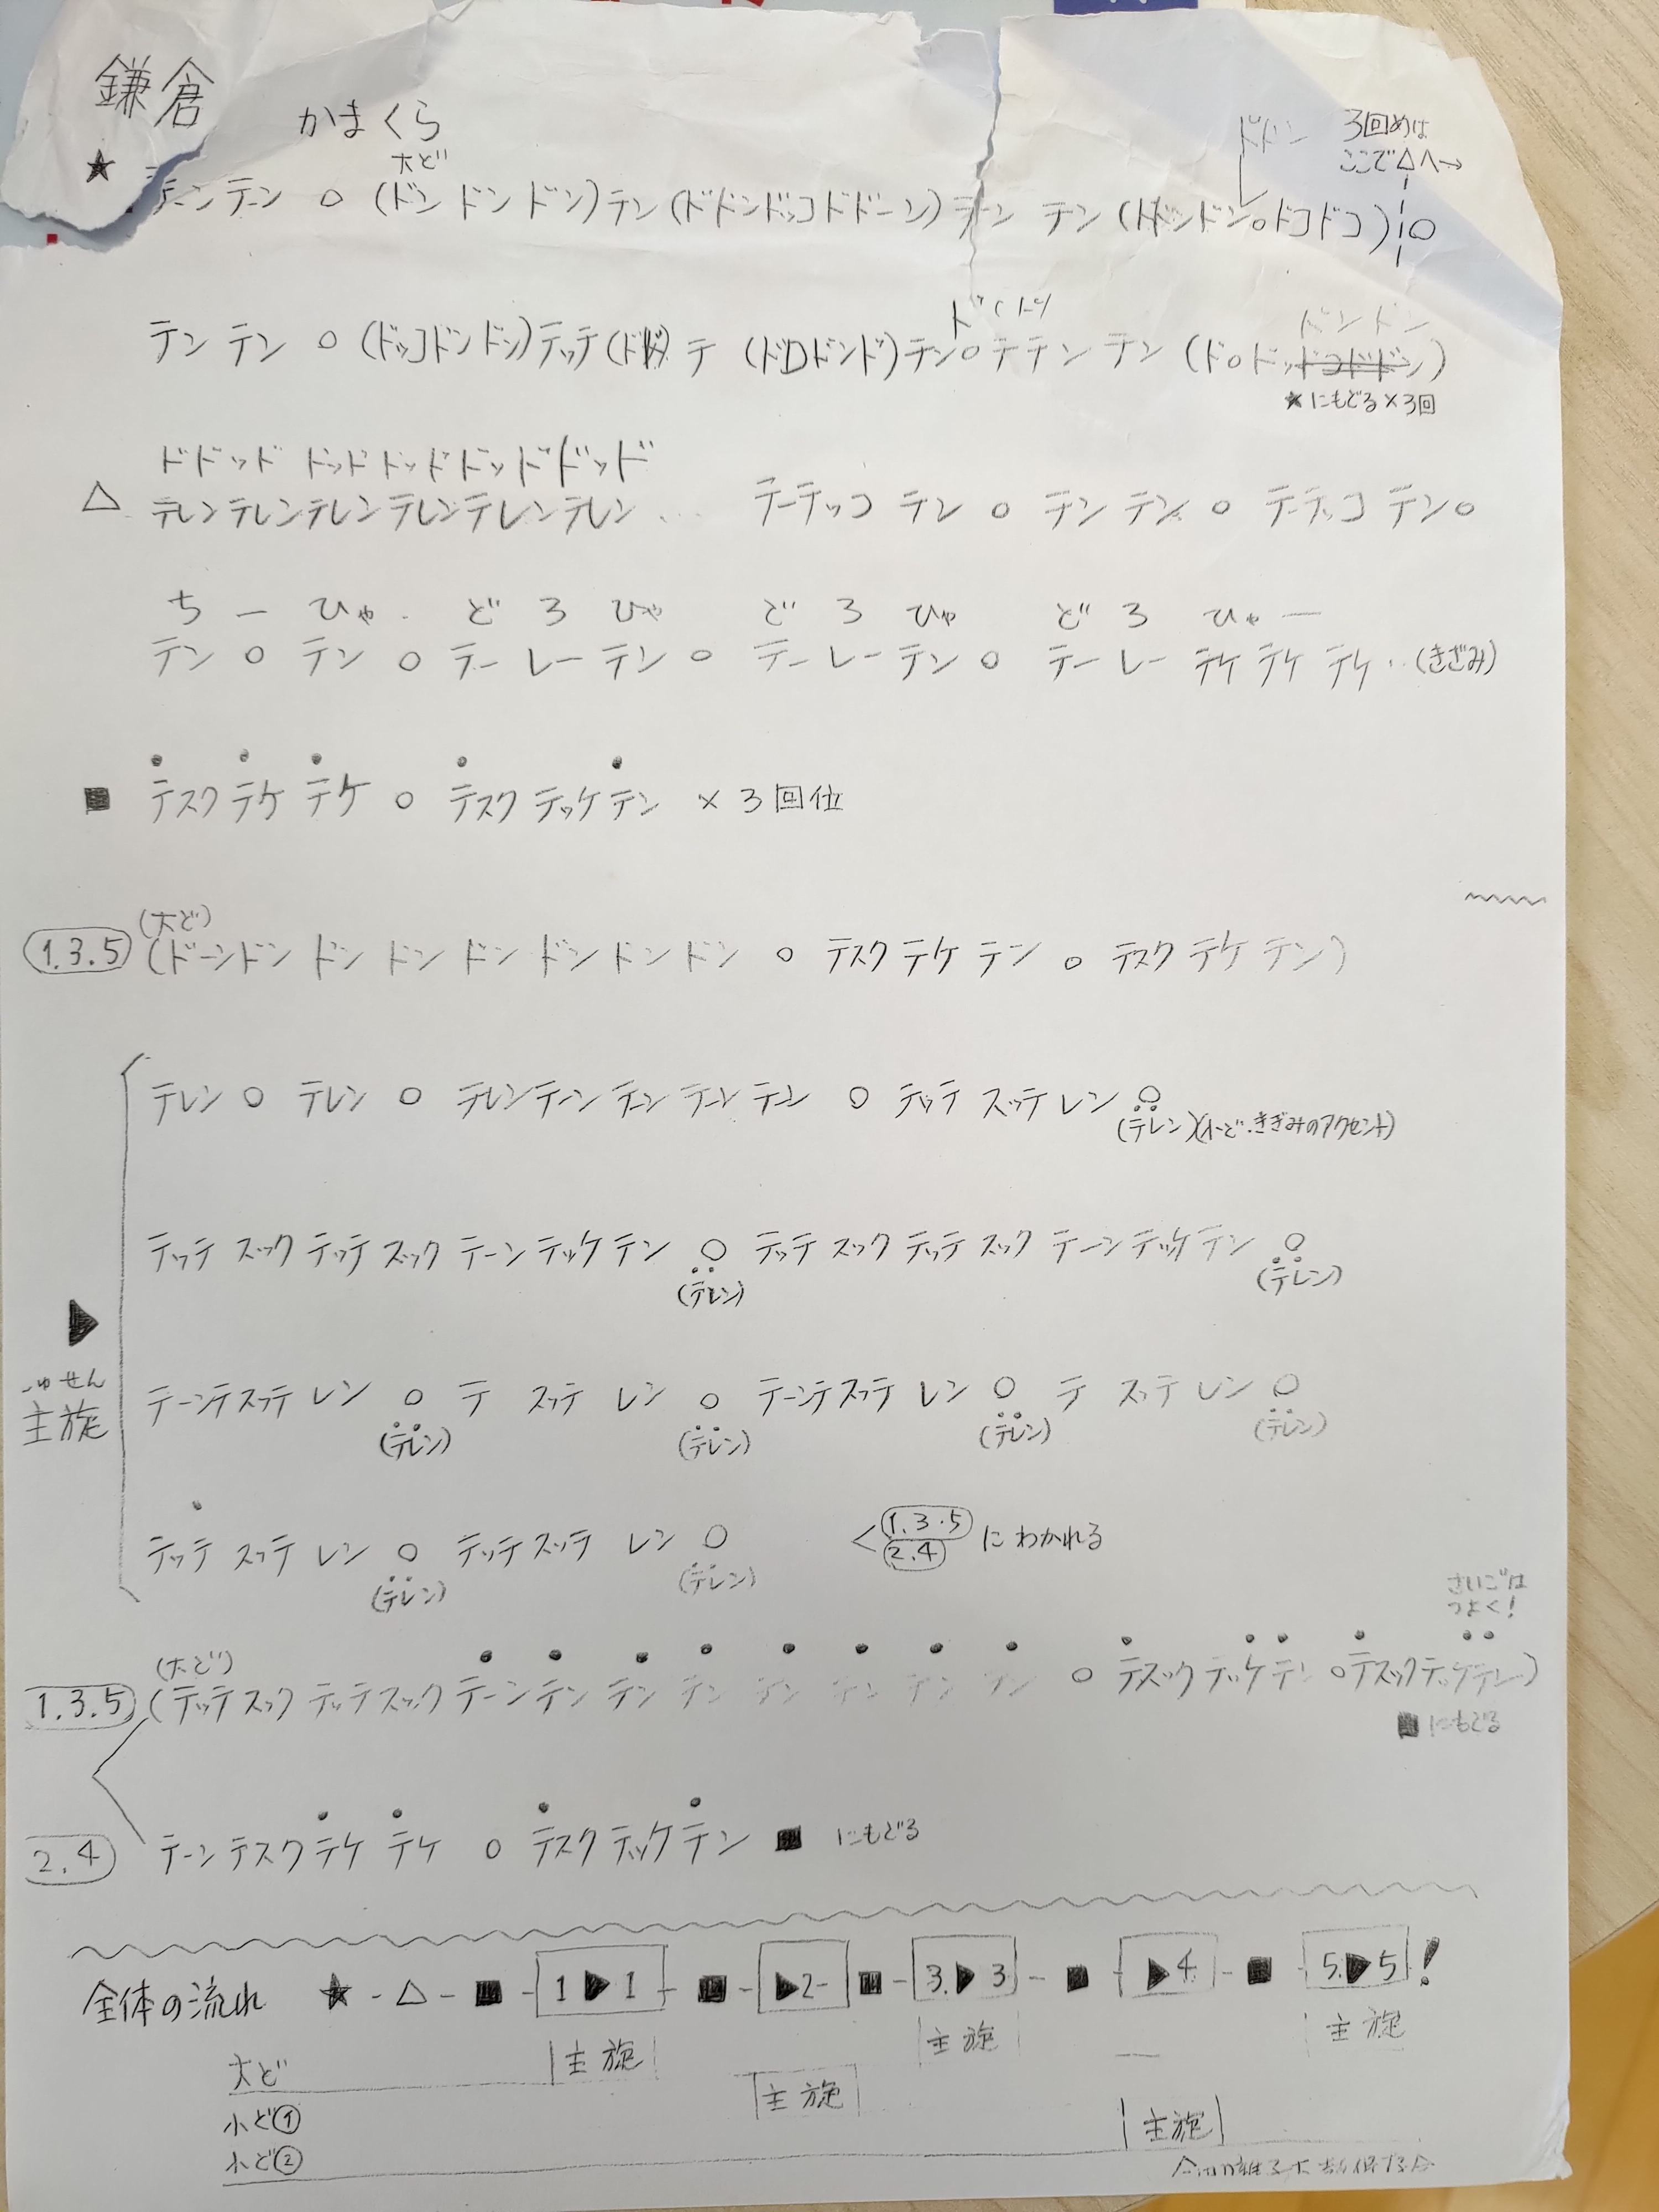 鎌倉
かまくら
ドドン 3回めは
★ 大ど ここで△へ→
テーンテーン ○ (ドン ドン ドン) テン (ドドンドッコドドーン) テーン テン (ドンドン○ドコドコ) ○
ドンドン
テン テン ○ (ドッコドンドン) テッテ ( テ (ド ドンド) テン○テテン テン (ド○ドッドコドドン)
★にもどる×3回
ドドッド ドッド ドッド ドッド ドドッド
△ テレンテレンテレン テレンテレンテレン … テーテッコ テン ○ テン テン ○ テーテッコ テン○
ち ー ひゃ ・ ど ろ ひゃ ど ろ ひゃ ど ろ ひゃ ー
テン ○ テン ○ テー レー テン ○ テー レー テン ○ テー レー テケ テケ テケ ‥ (きざみ)
■ テスク テケ テケ ○ テスク テッケ テン × 3回位
(大ど)
1.3.5 (ドーンドン ドン ドン ドン ドン ドン ドン ○ テスク テケ テン ○ テスク テケ テン)
テレン ○ テレン ○ テレン テーン テーン テーン テーン ○ テッテ スッテ レン ○
(テレン)(小ど・きざみのアクセント)
テッテ スック テッテ スック テーン テッケ テン ○ テッテ スック テッテ スック テーン テッケ テン ○
(テレン) (テレン)
▶
しゅせん
主旋
テーンテスッテ レン ○ テ スッテ レン ○ テーンテスッテ レン ○ テ スッテ レン ○
(テレン) (テレン) (テレン) (テレン)
テッテ スッテ レン ○ テッテスッテ レン ○ <1.3.5 2.4 にわかれる
(テレン) (テレン)
さいごは
つよく!
(大ど)
1.3.5 (テッテスック テッテスック テーン テン テン テン テン テン テン テン ○ テスック テッケ テン ○テスックテッケテン)
■にもどる
2.4 テーンテスク テケ テケ ○ テスク テッケ テン ■ にもどる
全体の流れ ★ - △ - ■ - 1▶1 - ■ - ▶2 - ■ - 3.▶3 - ■ - ▶4 - ■ - 5.▶5!
主旋 主旋 主旋
大ど
主旋
小ど①
主旋
小ど②